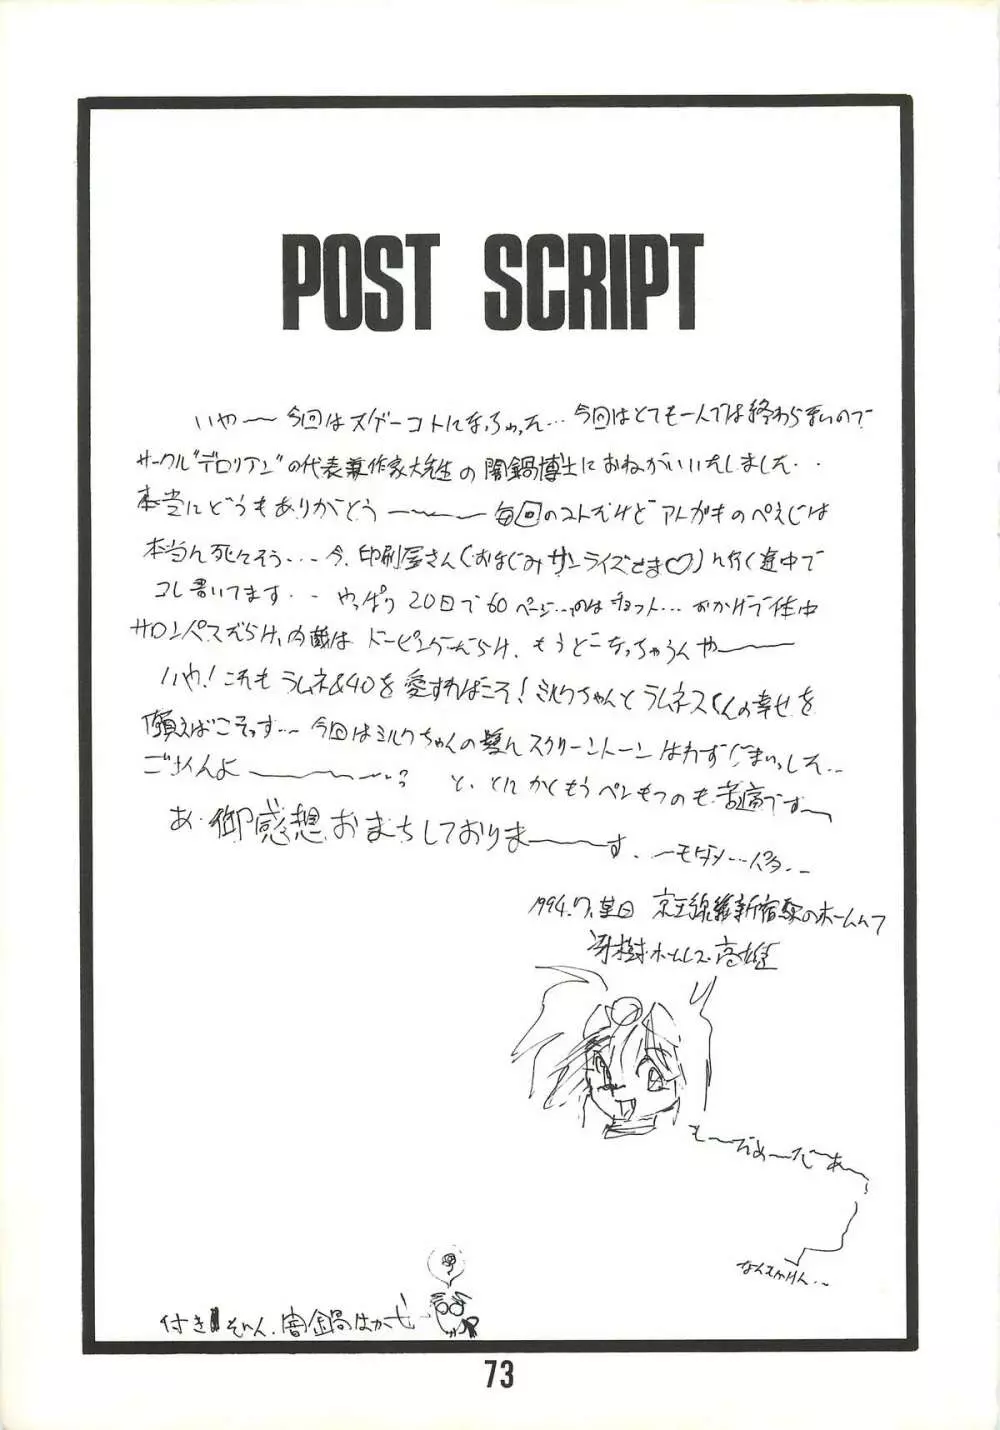 POST SCRIPT
いや〜〜今回はスゲーコトになっちゃった…今回はとても一人では終わらないので
サークル"デロリアン"の代表兼作家大先生の闇鍋博士におねがいいたしました‥
本当にどうもありがとう〜〜〜毎回のコトだけどアトガキのぺえじは
本当に死にそう…今、印刷屋さん(おなじみサンライズさま♡)に行く途中で
コレ書いてます‥やっぱり20日で60ページ…のはチョット…おかげで体中
サロンパスだらけ、内蔵はドーピングだらけ、もうどーなっちゃうんや〜〜〜
いや!これもラムネ&40を愛すればこそ!ミルクちゃんとラムネスくんの幸せを
願えばこそっす…今回はミルクちゃんの髪にスクリーントーンはわすじまいっした‥
ごめんよ〜〜〜? と、とにかくもうペンもつのも苦痛です〜
あ、御感想おまちしておりま〜〜〜す.
1994.7.某日 京王線新宿駅のホームにて
冴樹・ホームレス・高雄
も〜だめ〜だ〜あ〜
なんもかけん…
付き 闇鍋はかせ
73